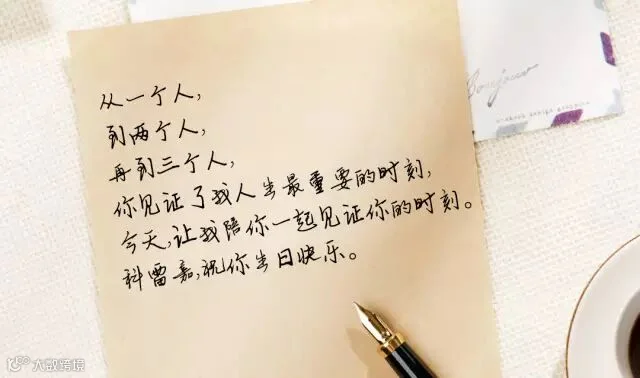 Bonjour
从一个人，
到两个人，
再到三个人，
你见证了我人生最重要的时刻，
今天，让我陪你一起见证你的时刻。
科雷嘉，祝你生日快乐。
大数跨境